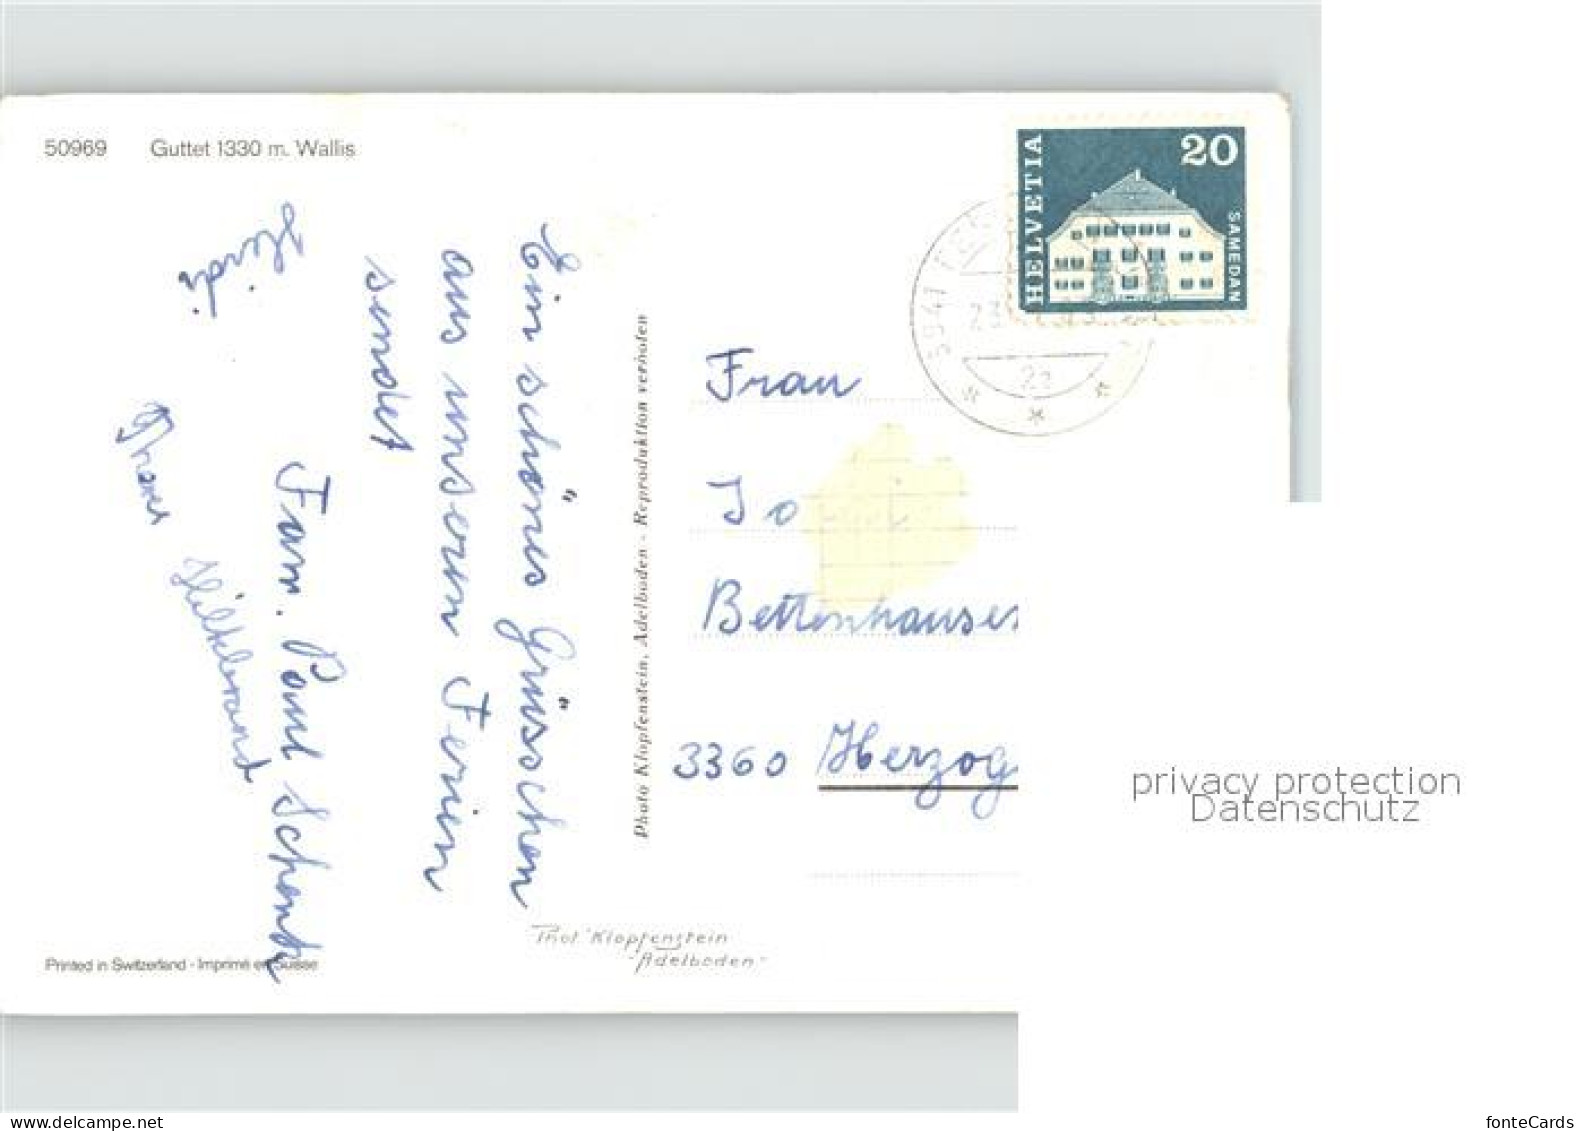 50969 Guttet 1330 m. Wallis
Ein schönes Grüsschen
aus unseren Ferien
sendet
Fam. Paul Schenk
Heidi
Hiltbrand
Printed in Switzerland - Imprimé en Suisse
Photo Klopfenstein, Adelboden - Reproduktion verboten
Phot. Klopfenstein
- Adelboden -
HELVETIA
20
SAMEDAN
3941
23
22
Frau
Jo
Bettenhausen
3360 Herzog
privacy protection
Datenschutz
fonteCards